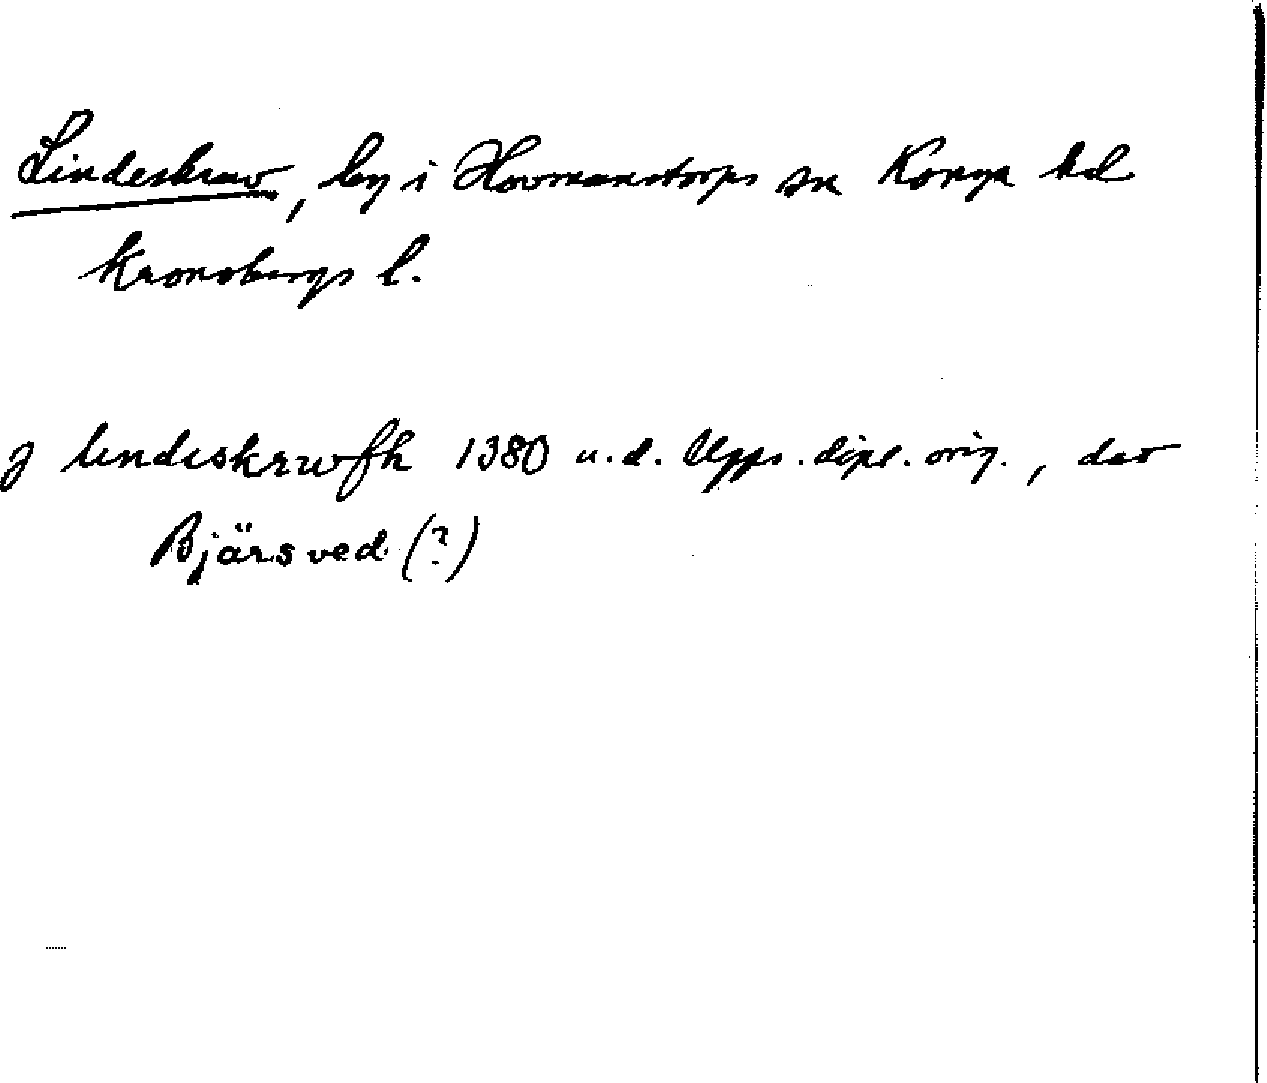 Lindeskruv, by i Hovmanstorps sn Konga hd
Kronobergs l.
j lindiskrwfh 1380 u.d. Upps. dipl. orig., dav
Bjärsved (?)